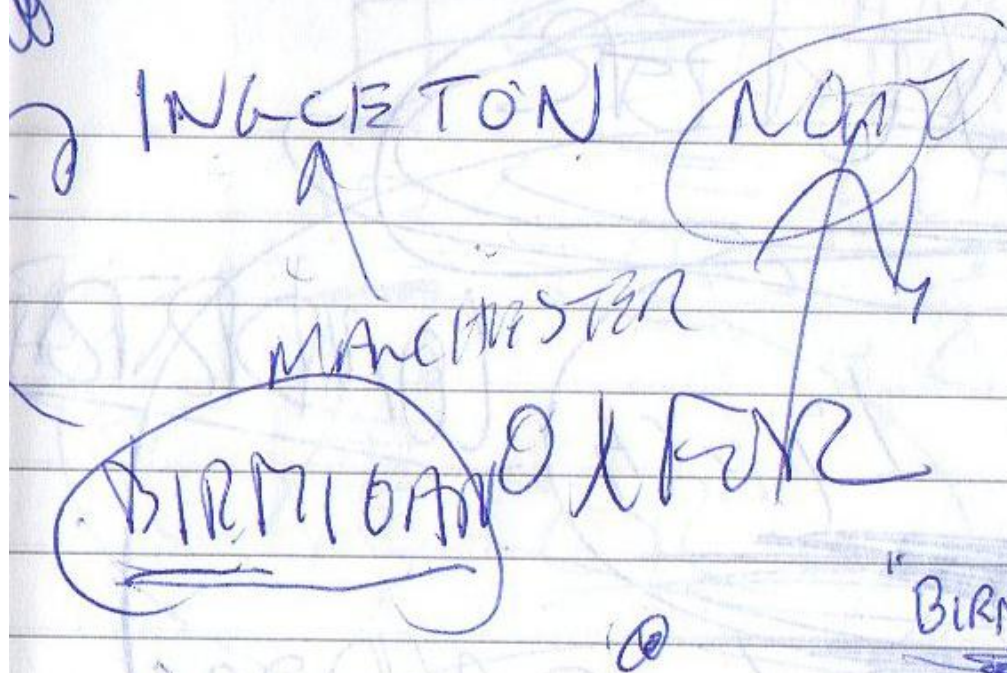 INGLETON
MANCHESTER
BIRMIGAM OXFOR
"BIRM